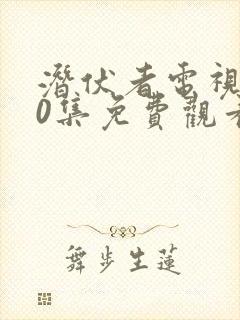 潛伏者電視
0集免費觀看
舞步生蓮